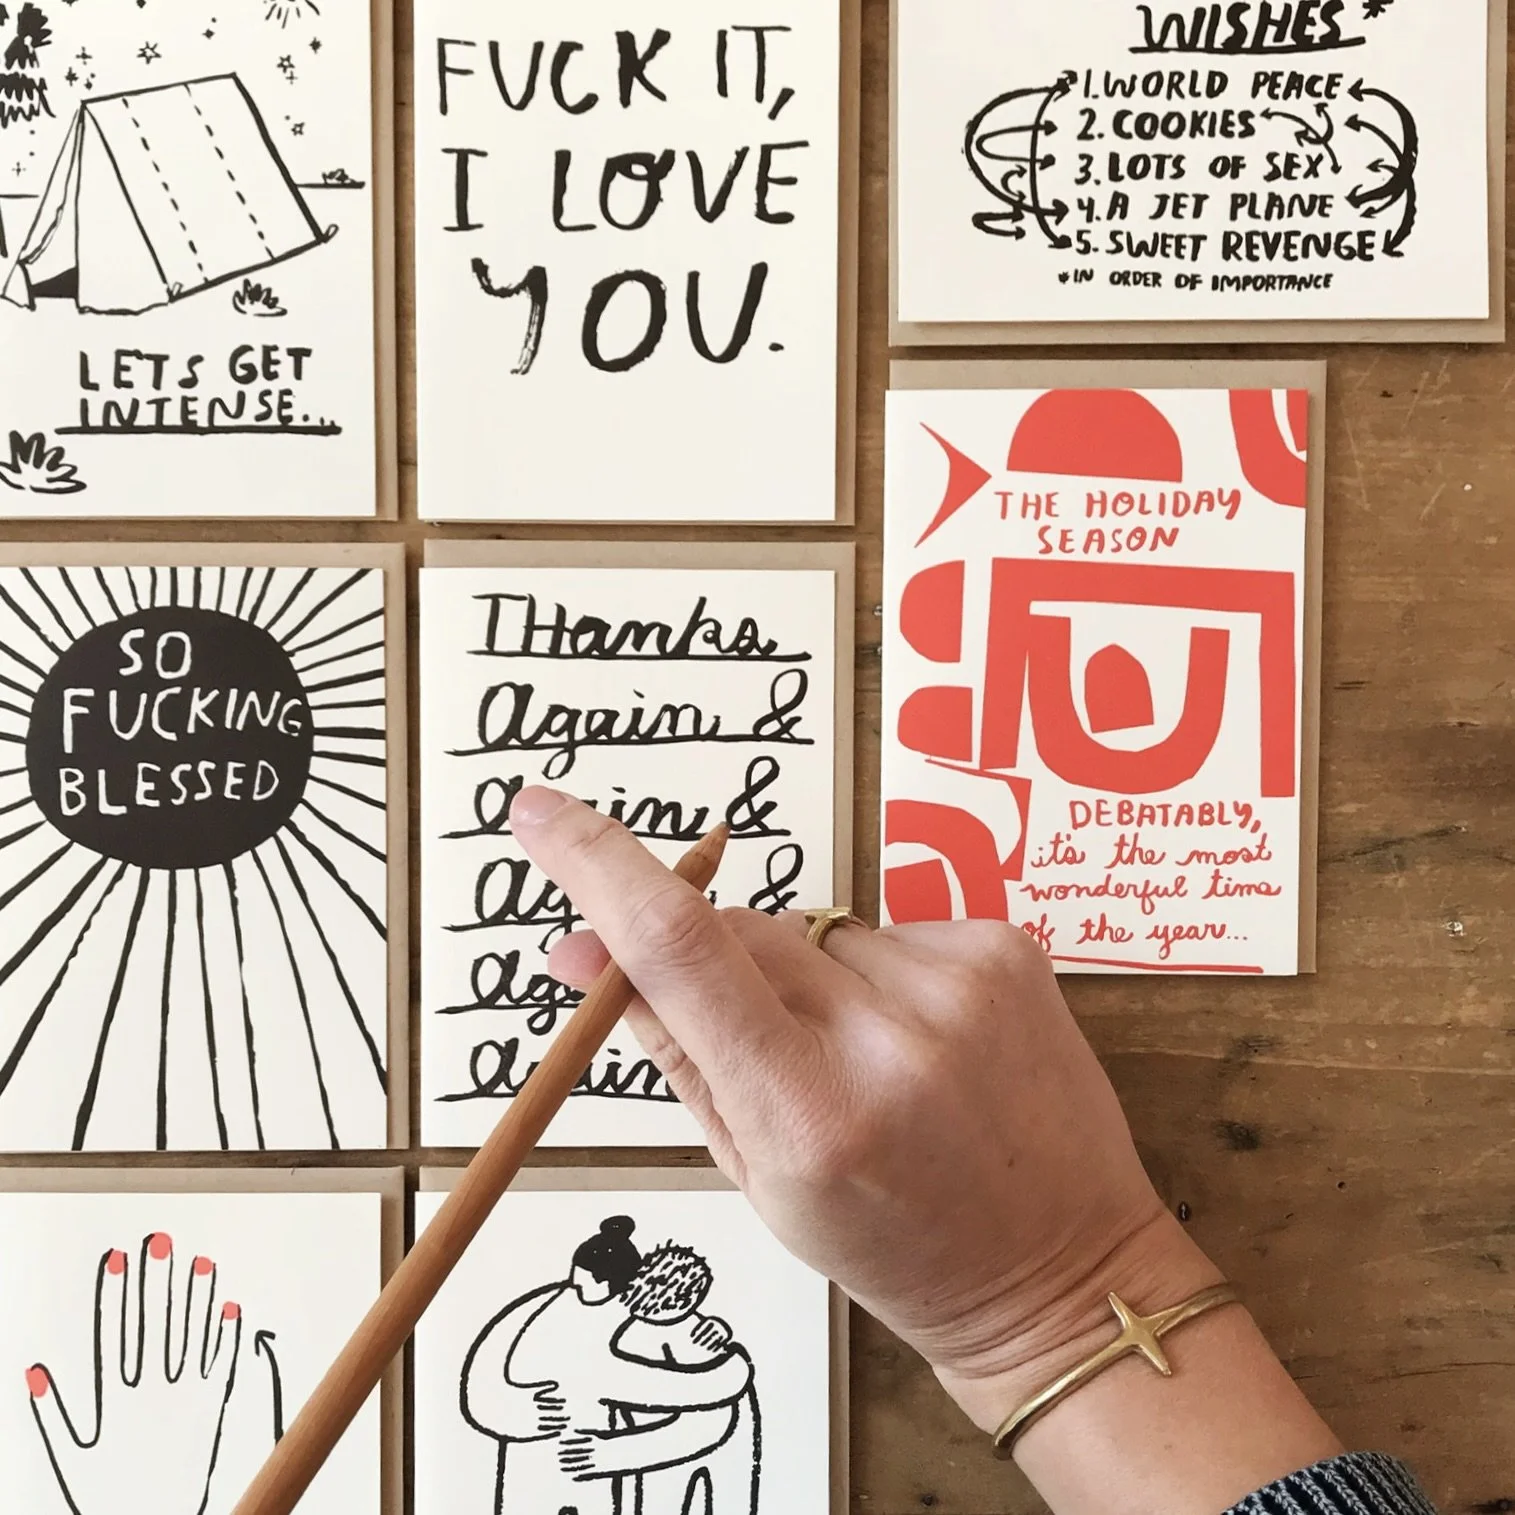 LETS GET
INTENSE...
FUCK IT,
I LOVE
YOU.
WISHES*
1. WORLD PEACE
2. COOKIES
3. LOTS OF SEX
4. A JET PLANE
5. SWEET REVENGE
*IN ORDER OF IMPORTANCE
SO
FUCKING
BLESSED
THanks
Again &
Again &
Again &
Again
Again
THE HOLIDAY
SEASON
DEBATABLY,
it's the most
wonderful time
of the year...